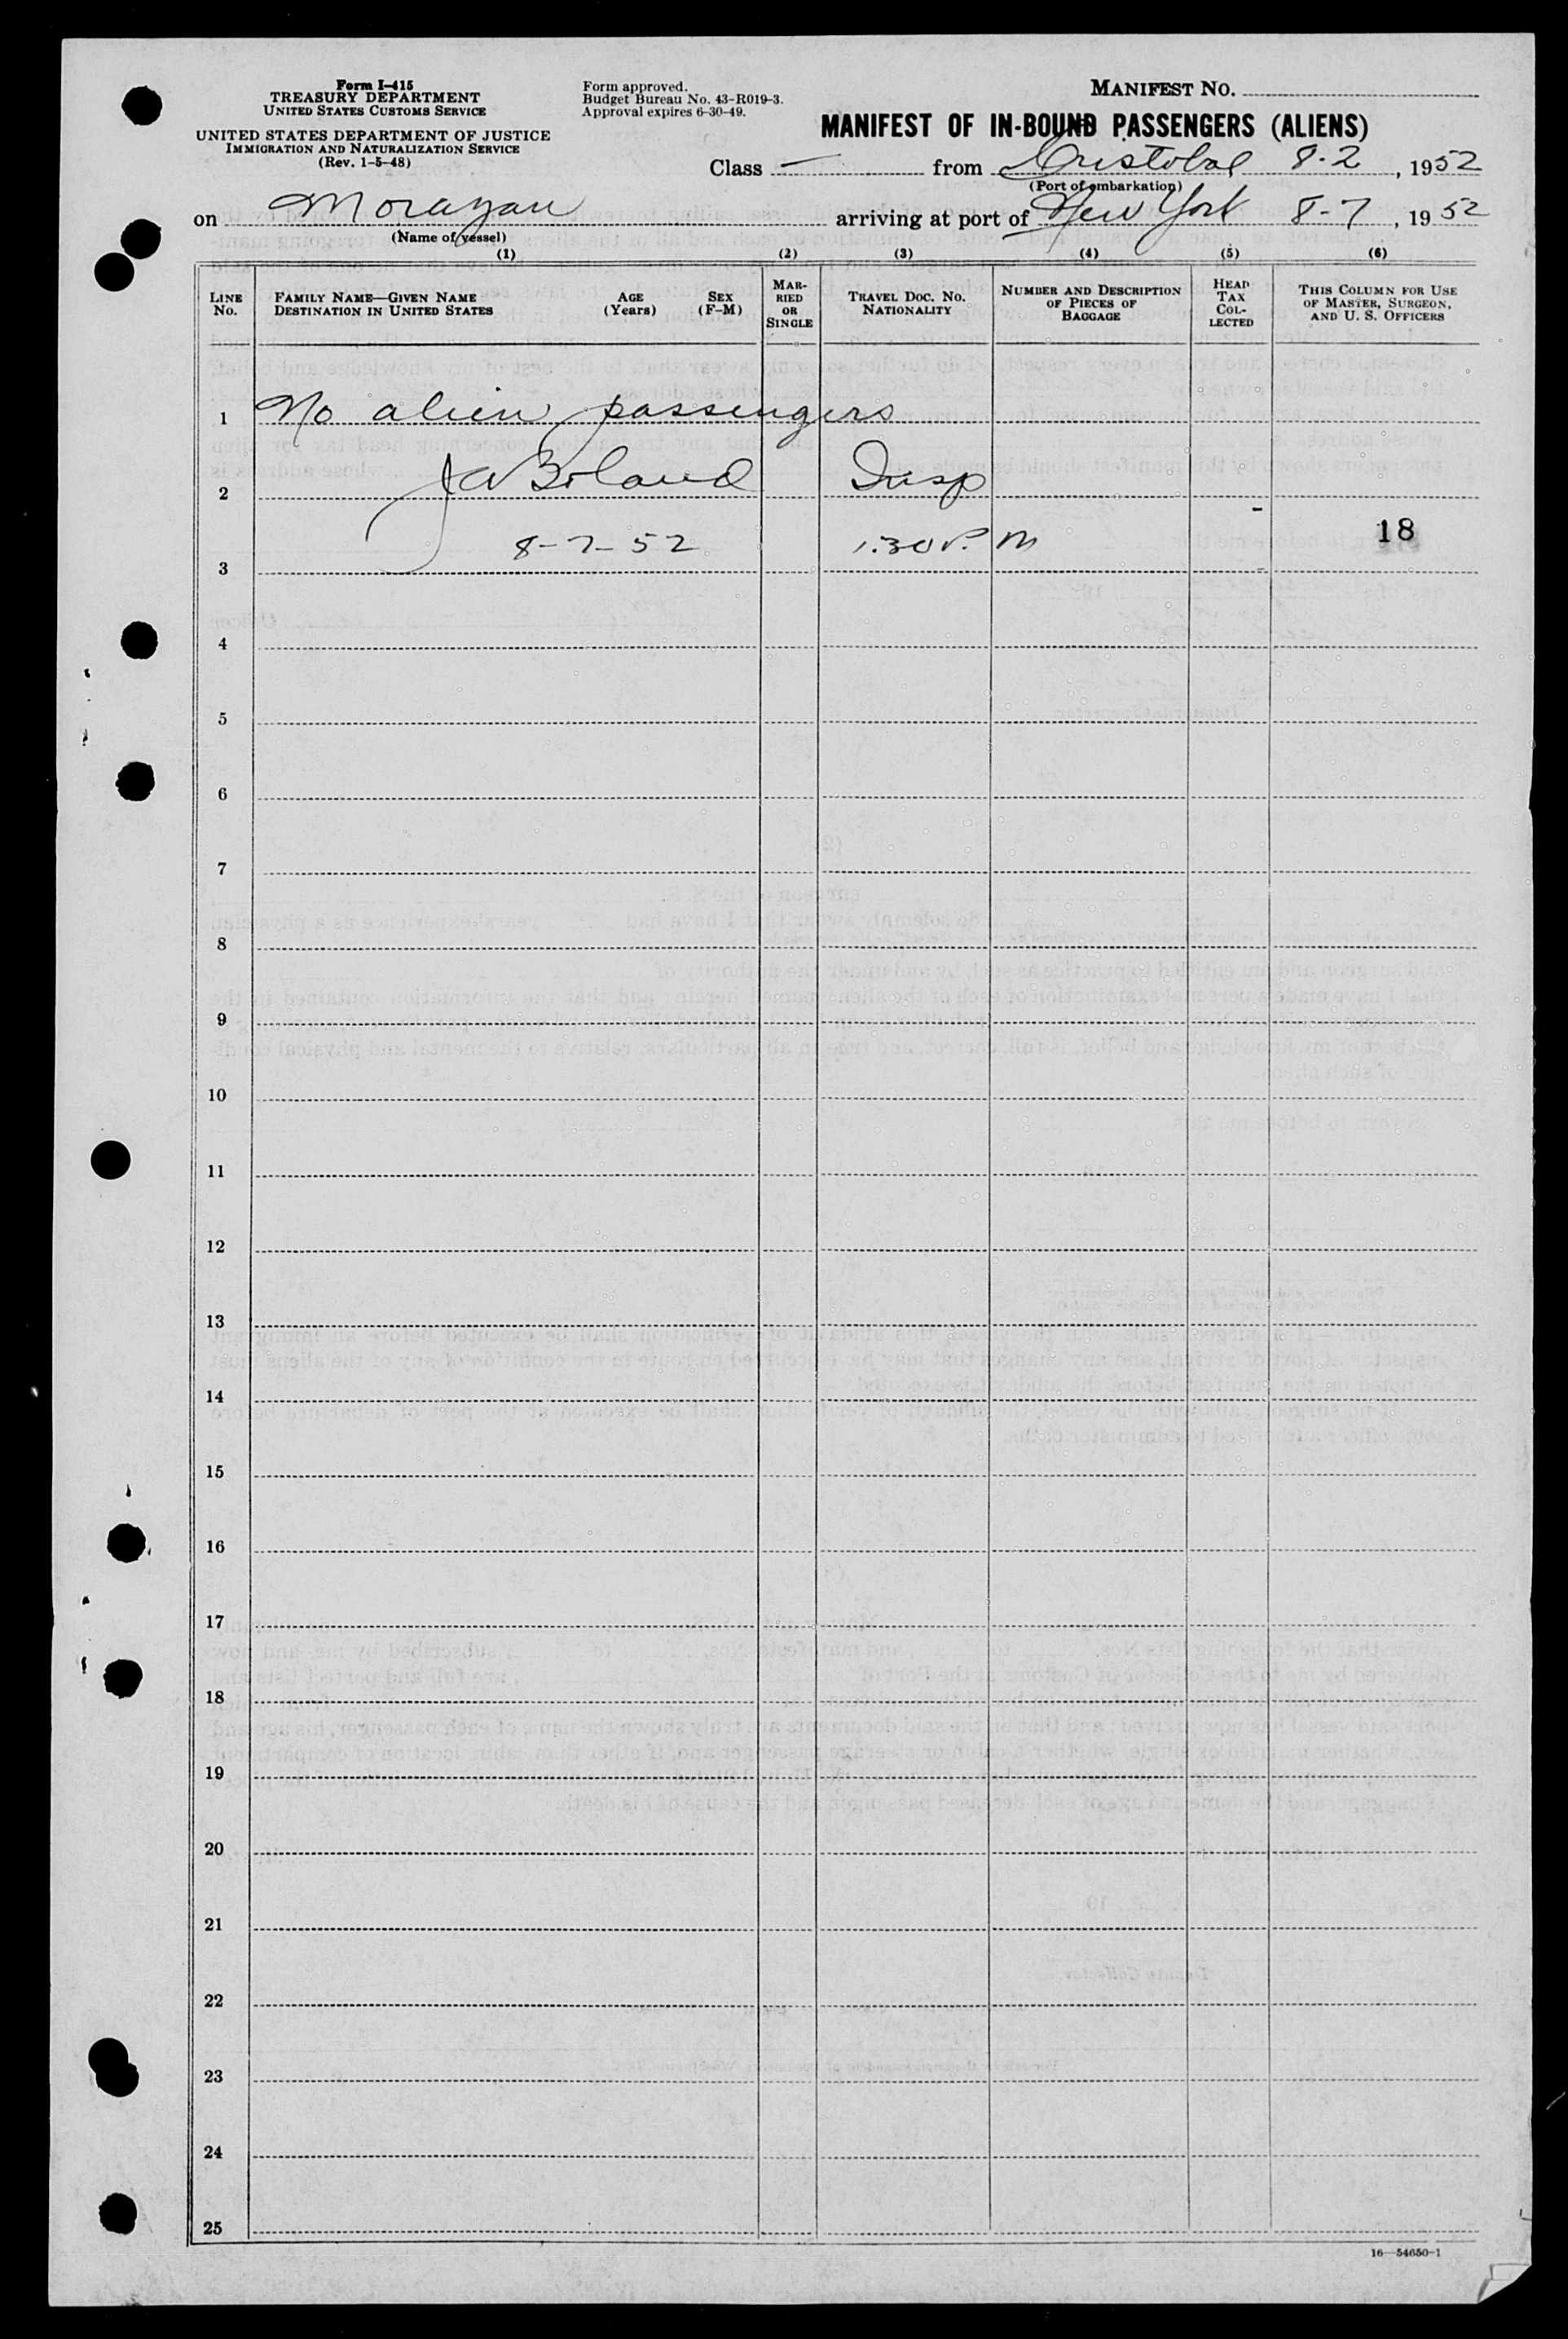 Form I-415
TREASURY DEPARTMENT
UNITED STATES CUSTOMS SERVICE
UNITED STATES DEPARTMENT OF JUSTICE
IMMIGRATION AND NATURALIZATION SERVICE
(Rev. 1-5-48)
Form approved.
Budget Bureau No. 43-R019-3.
Approval expires 6-30-49.
MANIFEST NO.
MANIFEST OF IN-BOUND PASSENGERS (ALIENS)
Class — from Cristobal 8-2, 1952
(Port of embarkation)
on Morazan arriving at port of New York 8-7, 1952
(Name of vessel)
(1) (2) (3) (4) (5) (6)
LINE No.
FAMILY NAME—GIVEN NAME
DESTINATION IN UNITED STATES
AGE (Years)
SEX (F-M)
MARRIED OR SINGLE
TRAVEL DOC. NO.
NATIONALITY
NUMBER AND DESCRIPTION
OF PIECES OF
BAGGAGE
HEAD
TAX
COL-
LECTED
THIS COLUMN FOR USE
OF MASTER, SURGEON,
AND U. S. OFFICERS
1 No alien passengers
2 J A Boland Insp
3 8-7-52 1:30 P.M 18
4
5
6
7
8
9
10
11
12
13
14
15
16
17
18
19
20
21
22
23
24
25
16—54650-1